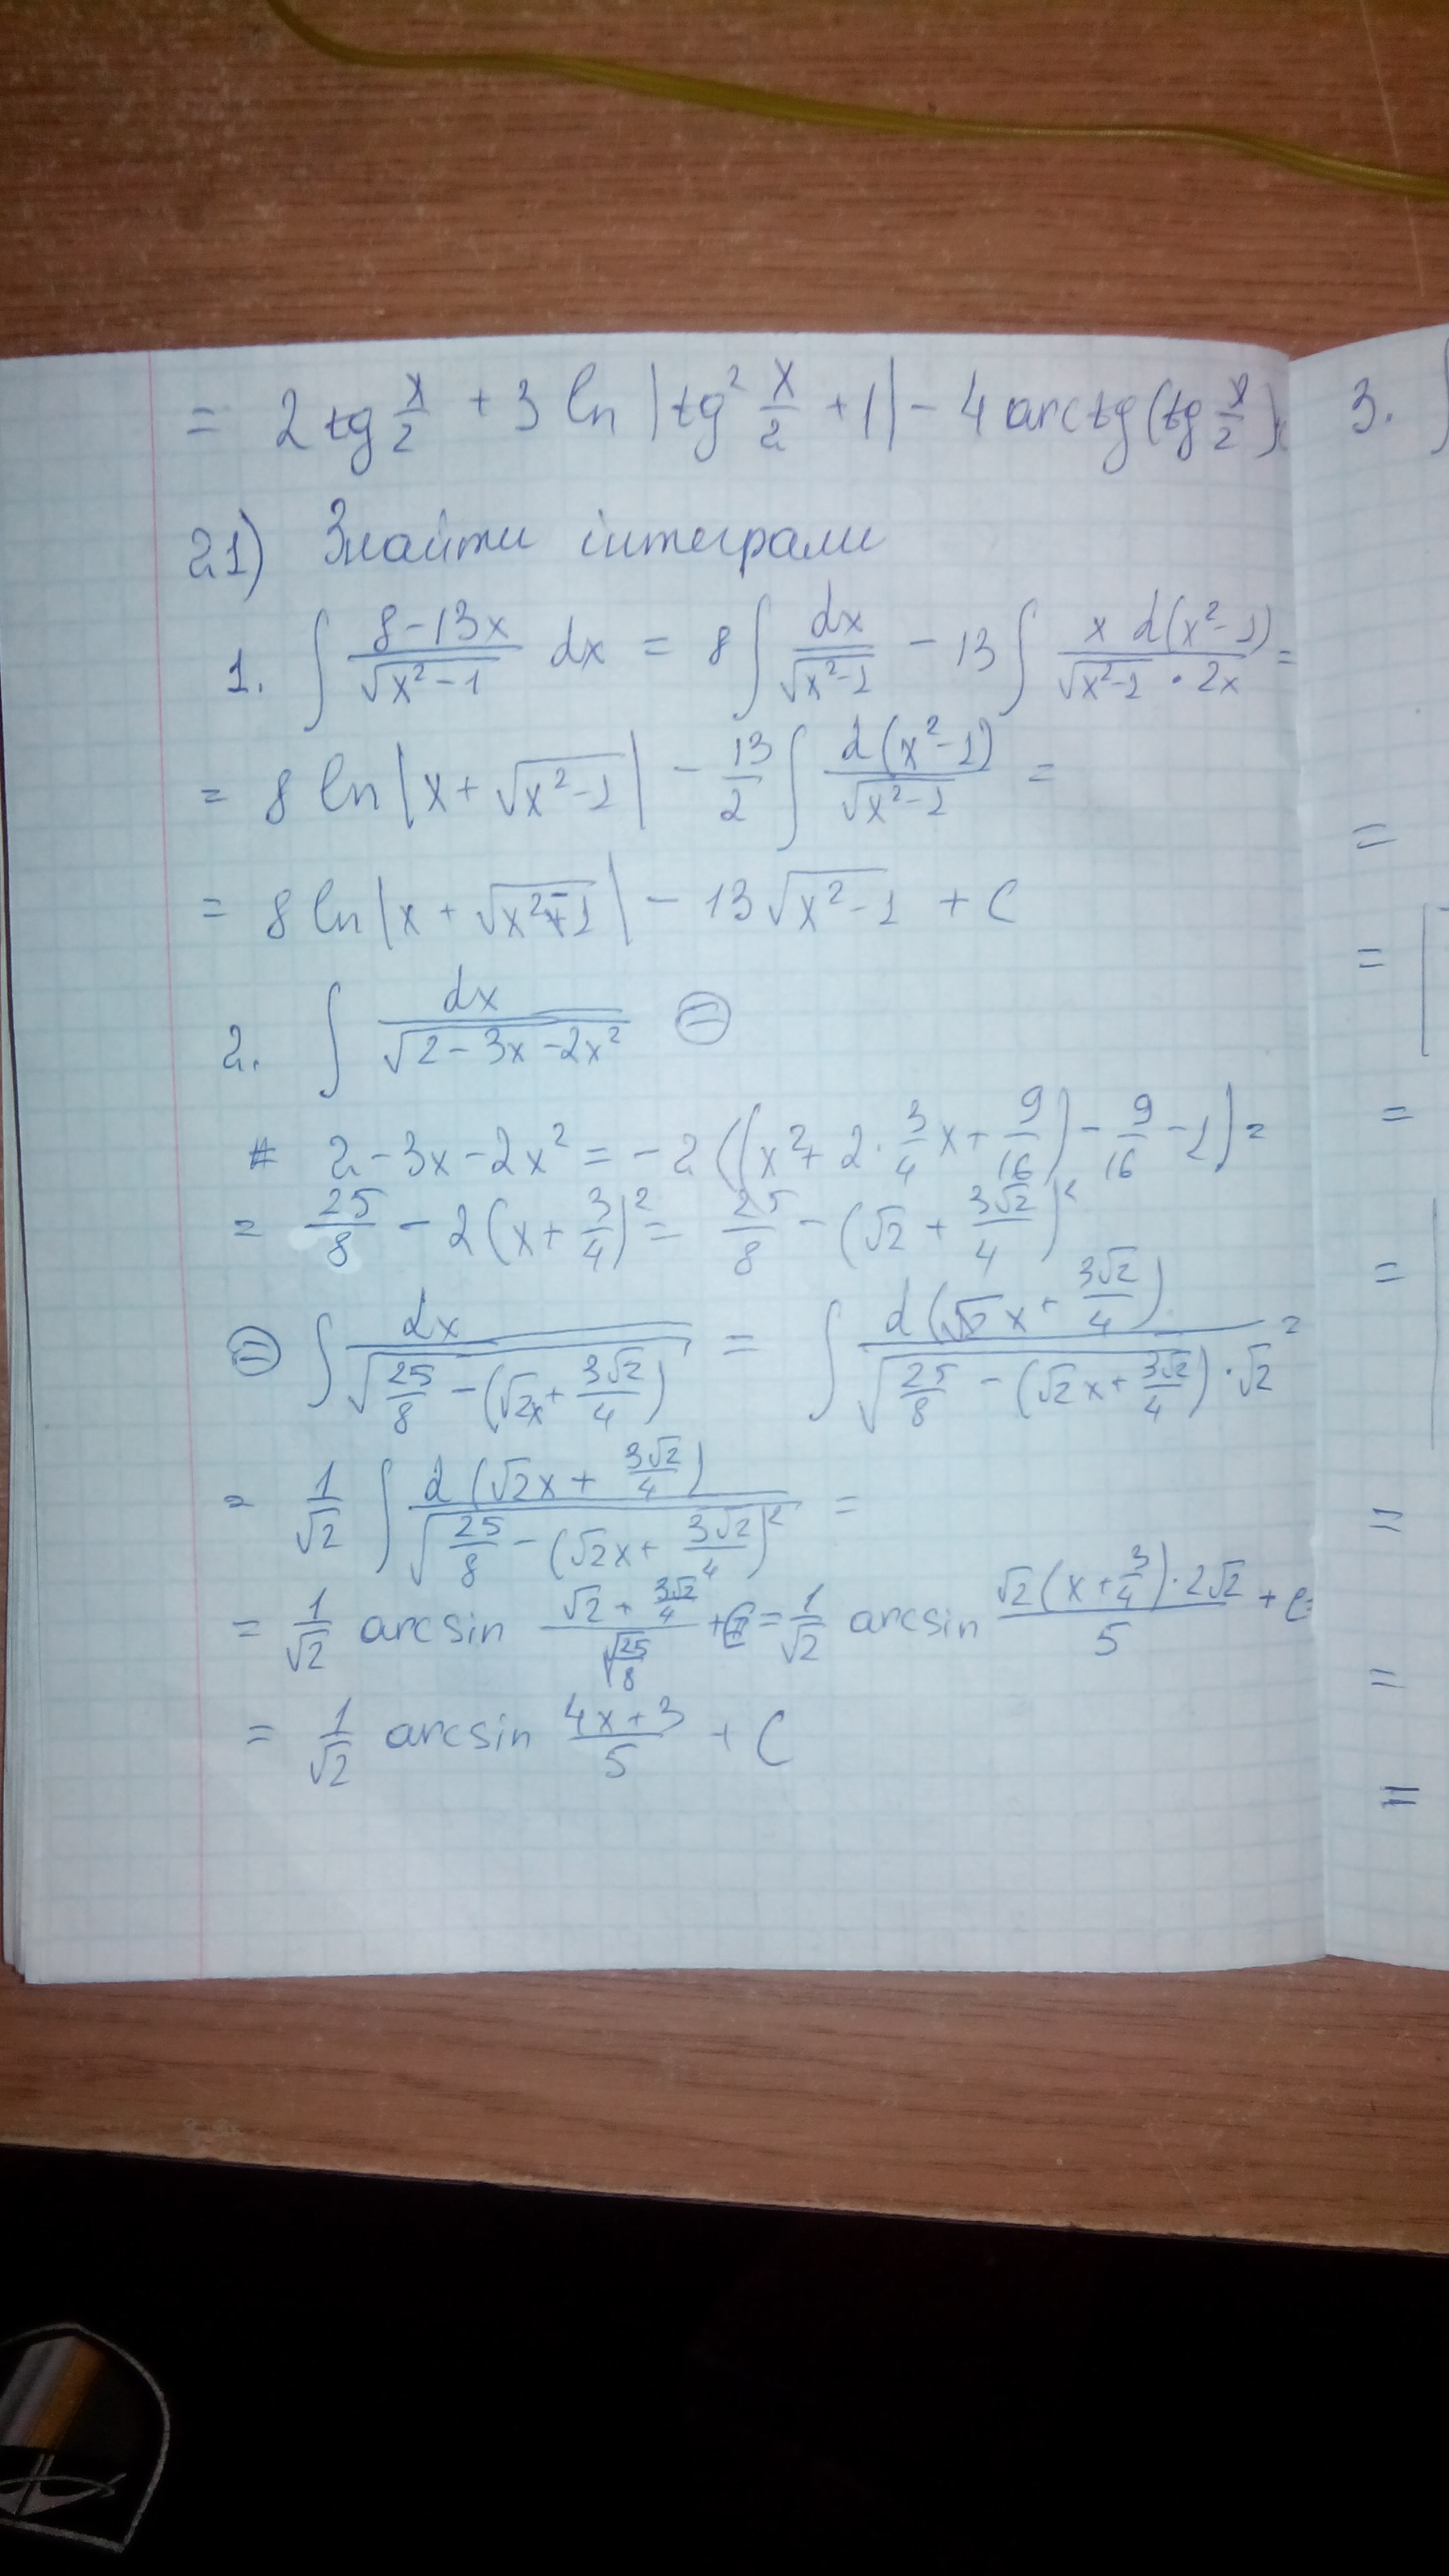 = 2 tg x/2 + 3 ln |tg² x/2 + 1| - 4 arctg (tg x/2)
21) Знайти інтеграли
1. ∫ (8-13x)/√(x²-1) dx = 8 ∫ dx/√(x²-1) - 13 ∫ (x d(x²-1))/(√(x²-1) · 2x) =
= 8 ln |x + √(x²-1)| - 13/2 ∫ d(x²-1)/√(x²-1) =
= 8 ln |x + √(x²-1)| - 13 √(x²-1) + C
2. ∫ dx/√(2-3x-2x²) ⊜
# 2-3x-2x² = -2 ((x² + 2 · 3/4 x + 9/16) - 9/16 - 1) =
= 25/8 - 2(x + 3/4)² = 25/8 - (√2 + 3√2/4)²
⊜ ∫ dx/√(25/8 - (√2x + 3√2/4)) = ∫ d(√2 x + 3√2/4)/(√(25/8 - (√2x + 3√2/4)) · √2) =
= 1/√2 ∫ d(√2x + 3√2/4)/√(25/8 - (√2x + 3√2/4)²) =
= 1/√2 arcsin (√2 + 3√2/4)/√(25/8) + C = 1/√2 arcsin (√2(x + 3/4) · 2√2)/5 + C =
= 1/√2 arcsin (4x+3)/5 + C
3. ∫
=
= [
=
=
=
=
=